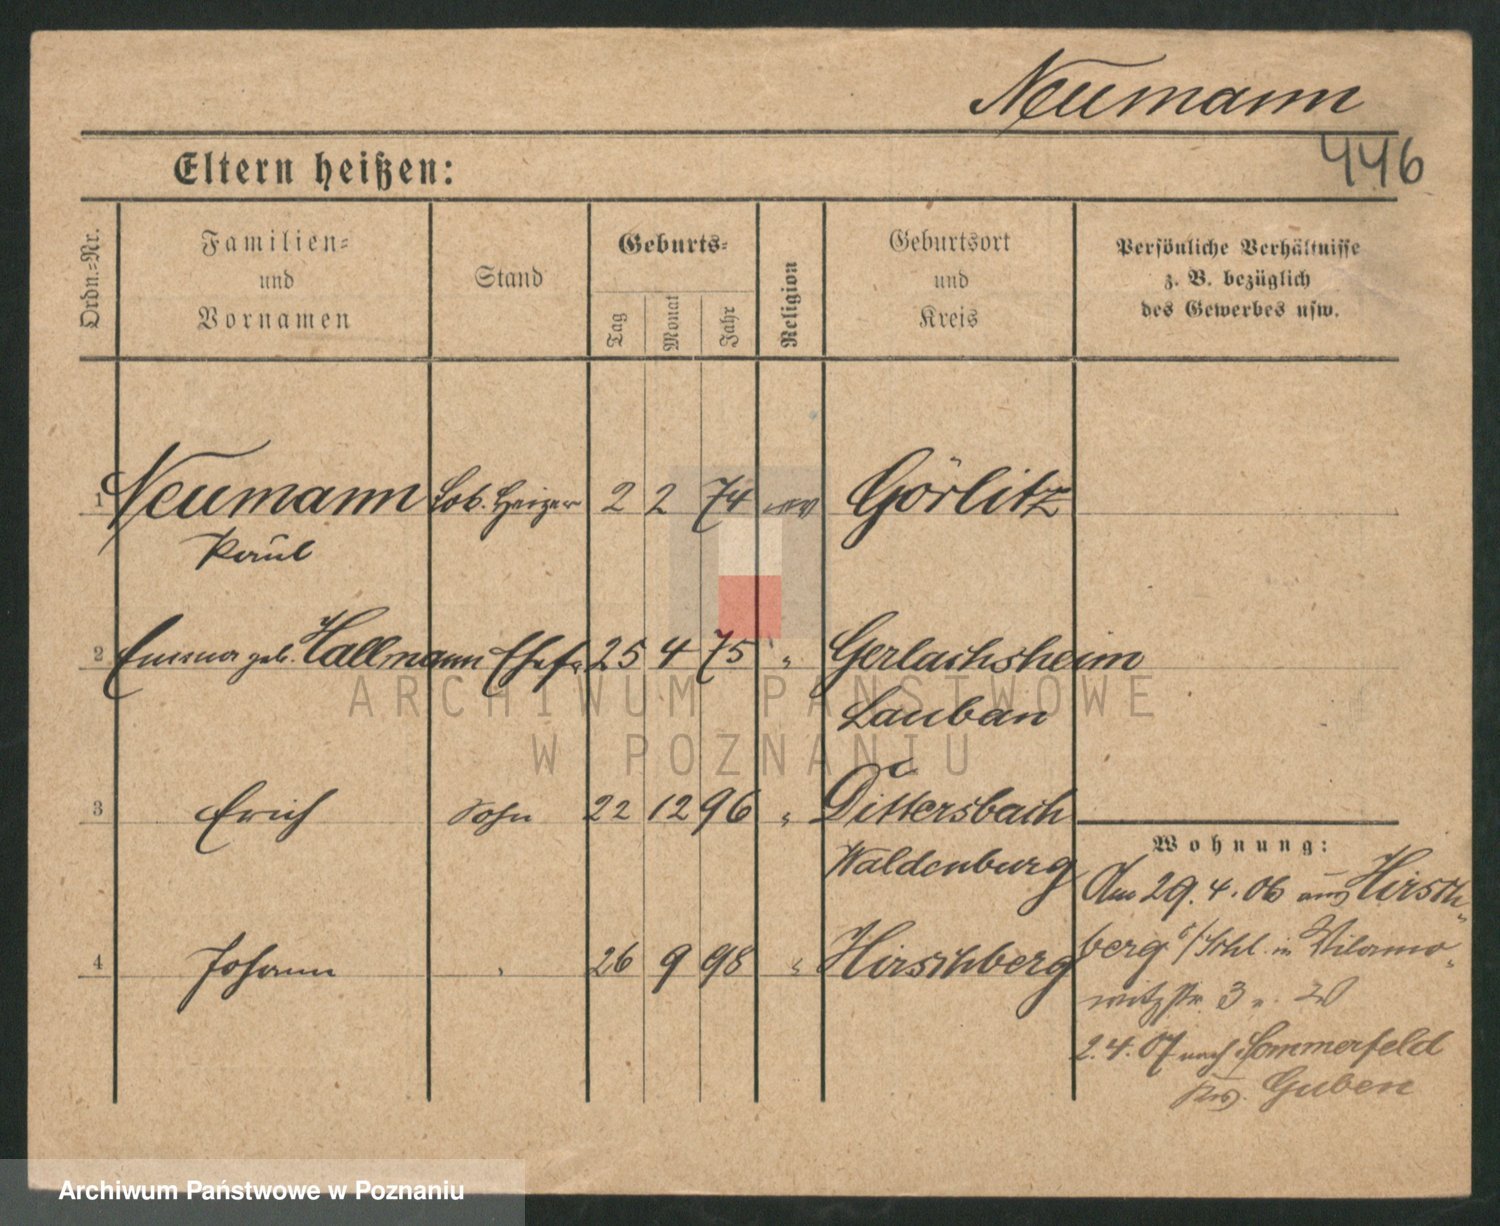 Neumann
446
Eltern heißen:
Ordn.=Nr.
Familien=
und
Vornamen
Stand
Geburts=
Tag
Monat
Jahr
Religion
Geburtsort
und
Kreis
Persönliche Verhältnisse
z. B. bezüglich
des Gewerbes usw.
1 Neumann Lok. Heizer 2 2 74 Görlitz
Paul
2 Emma geb. Hallmann Ehefr. 25 4 75 " Gerlachsheim
Lauban
3 Erich Sohn 22 12 96 " Dittersbach
Waldenburg
4 Johann " 26 9 98 " Hirschberg
Wohnung:
Am 29.4.06 aus Hirsch-
berg i/Schl. in Wilamo-
witzstr. 3
2.4.07 nach Sommerfeld
Krs. Guben
ARCHIWUM PAŃSTWOWE
W POZNANIU
Archiwum Państwowe w Poznaniu